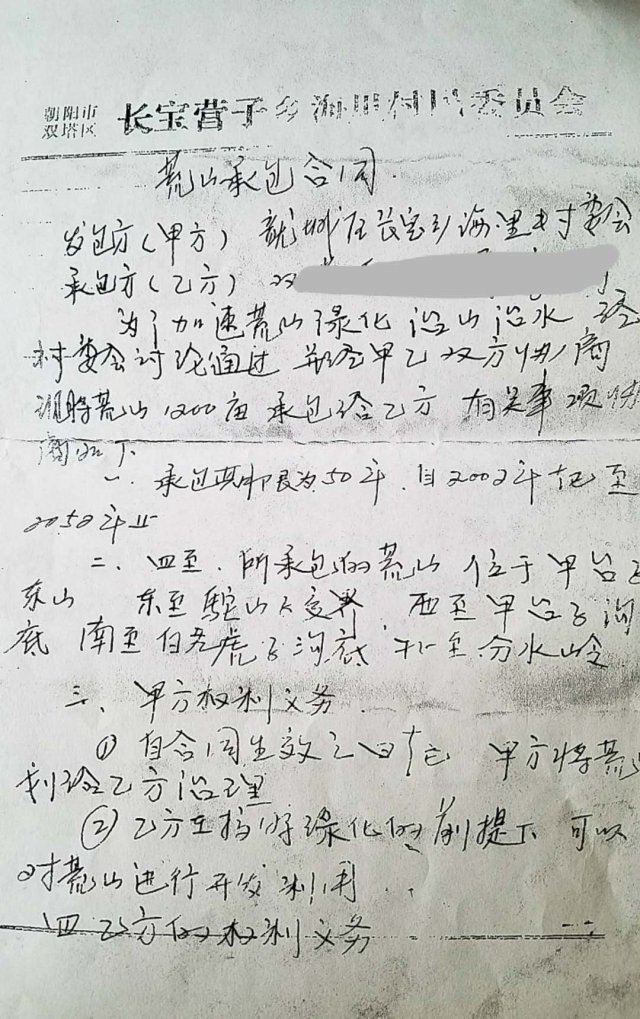 朝阳市
双塔区
长宝营子乡海里村民委员会
荒山承包合同
发包方（甲方） 龙城区长宝乡海里村委会
承包方（乙方） 双
为了加速荒山绿化 治山治水 经
村委会讨论通过 并经甲乙双方协商
现将荒山1200亩 承包给乙方 有关事项协
商如下
一、承包期限为50年，自2002年起至
2052年止
二、四至，所承包的荒山 位于甲台子
东山 东至 交界，西至甲台子沟
底 南至白老虎子沟底 北至分水岭
三、甲方权利义务
① 自合同生效之日起 甲方将荒山
划给乙方治理
② 乙方在搞好绿化的前提下 可以
对荒山进行开发利用
四 乙方的权利义务